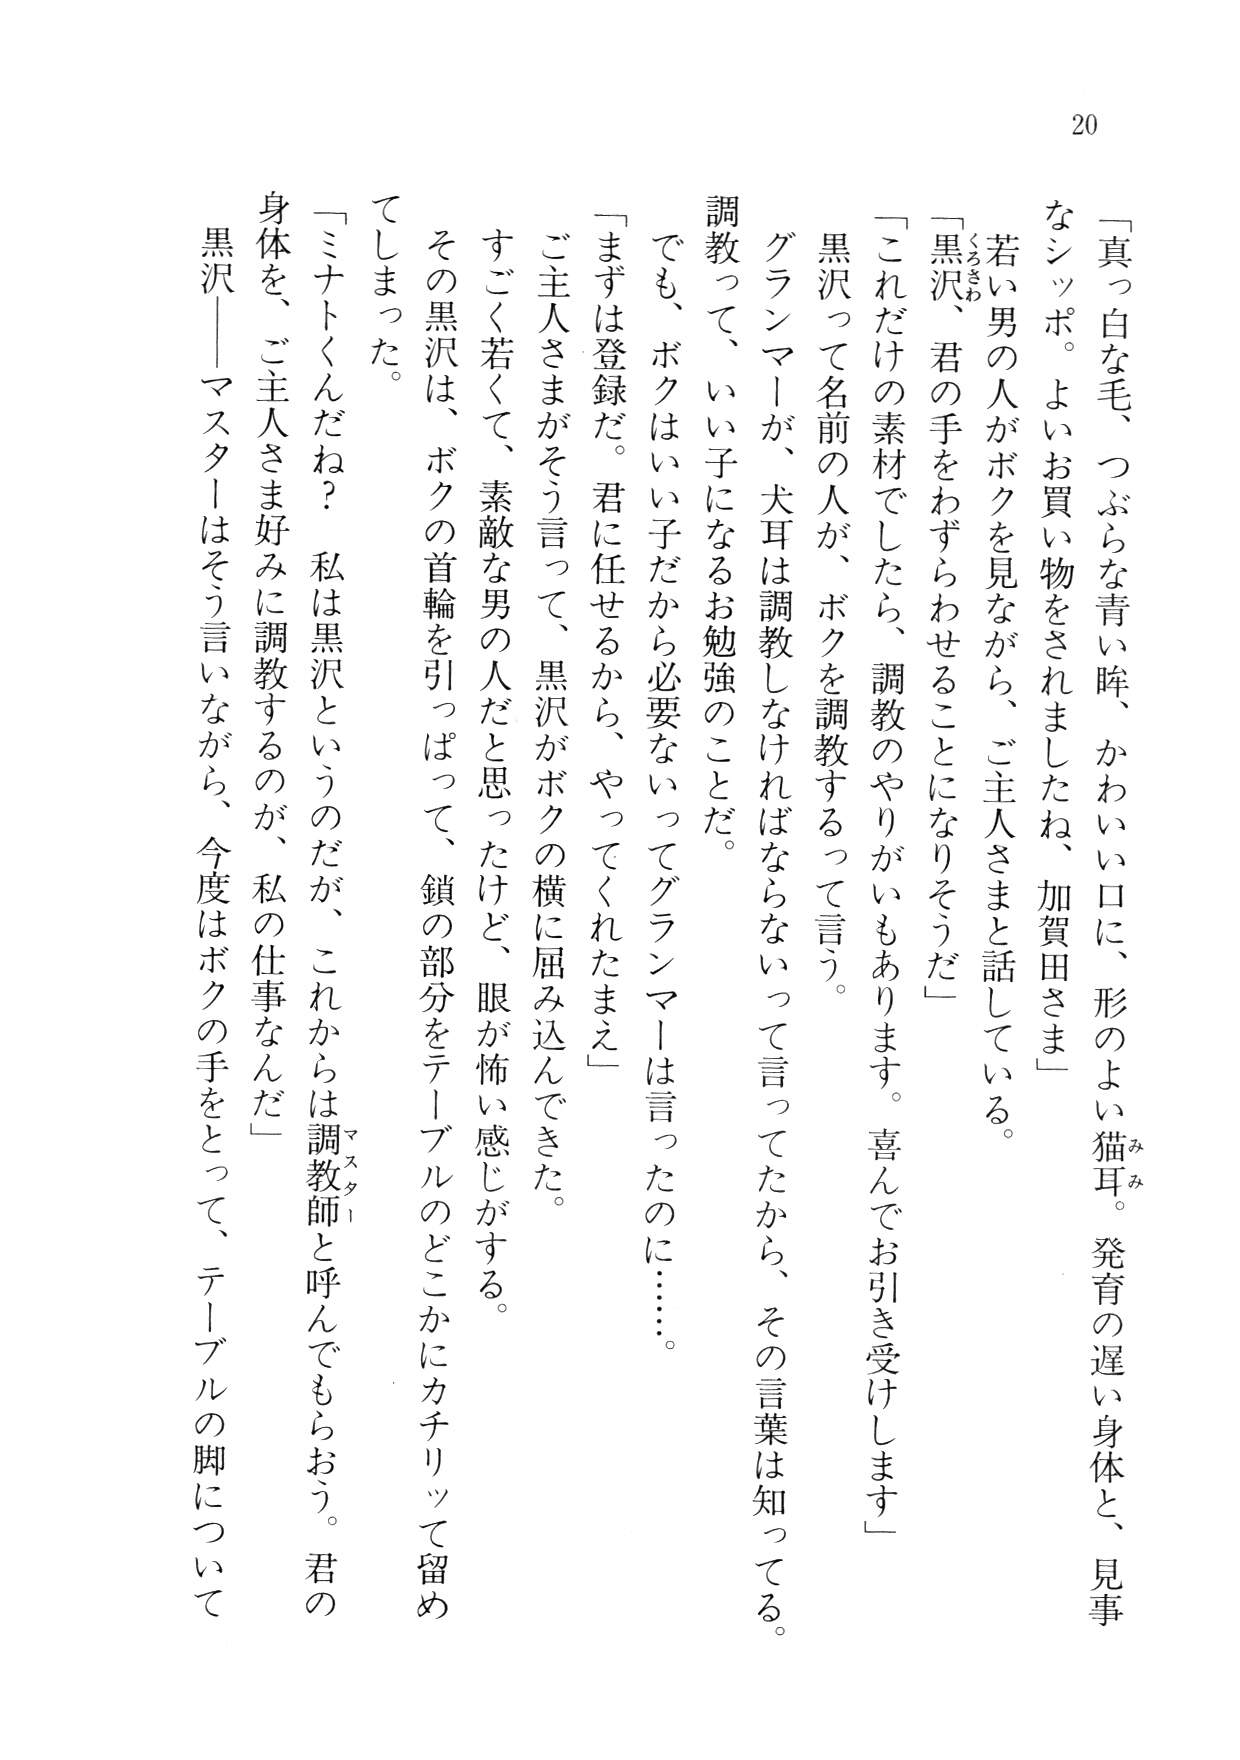 20
「真っ白な毛、つぶらな青い眸、かわいい口に、形のよい猫耳。発育の遅い身体と、見事
なシッポ。よいお買い物をされましたね、加賀田さま」
若い男の人がボクを見ながら、ご主人さまと話している。
「黒沢、君の手をわずらわせることになりそうだ」
「これだけの素材でしたら、調教のやりがいもあります。喜んでお引き受けします」
黒沢って名前の人が、ボクを調教するって言う。
グランマーが、犬耳は調教しなければならないって言ってたから、その言葉は知ってる。
調教って、いい子になるお勉強のことだ。
でも、ボクはいい子だから必要ないってグランマーは言ったのに……。
「まずは登録だ。君に任せるから、やってくれたまえ」
ご主人さまがそう言って、黒沢がボクの横に屈み込んできた。
すごく若くて、素敵な男の人だと思ったけど、眼が怖い感じがする。
その黒沢は、ボクの首輪を引っぱって、鎖の部分をテーブルのどこかにカチリッて留め
てしまった。
「ミナトくんだね？　私は黒沢というのだが、これからは調教師と呼んでもらおう。君の
身体を、ご主人さま好みに調教するのが、私の仕事なんだ」
黒沢――マスターはそう言いながら、今度はボクの手をとって、テーブルの脚について